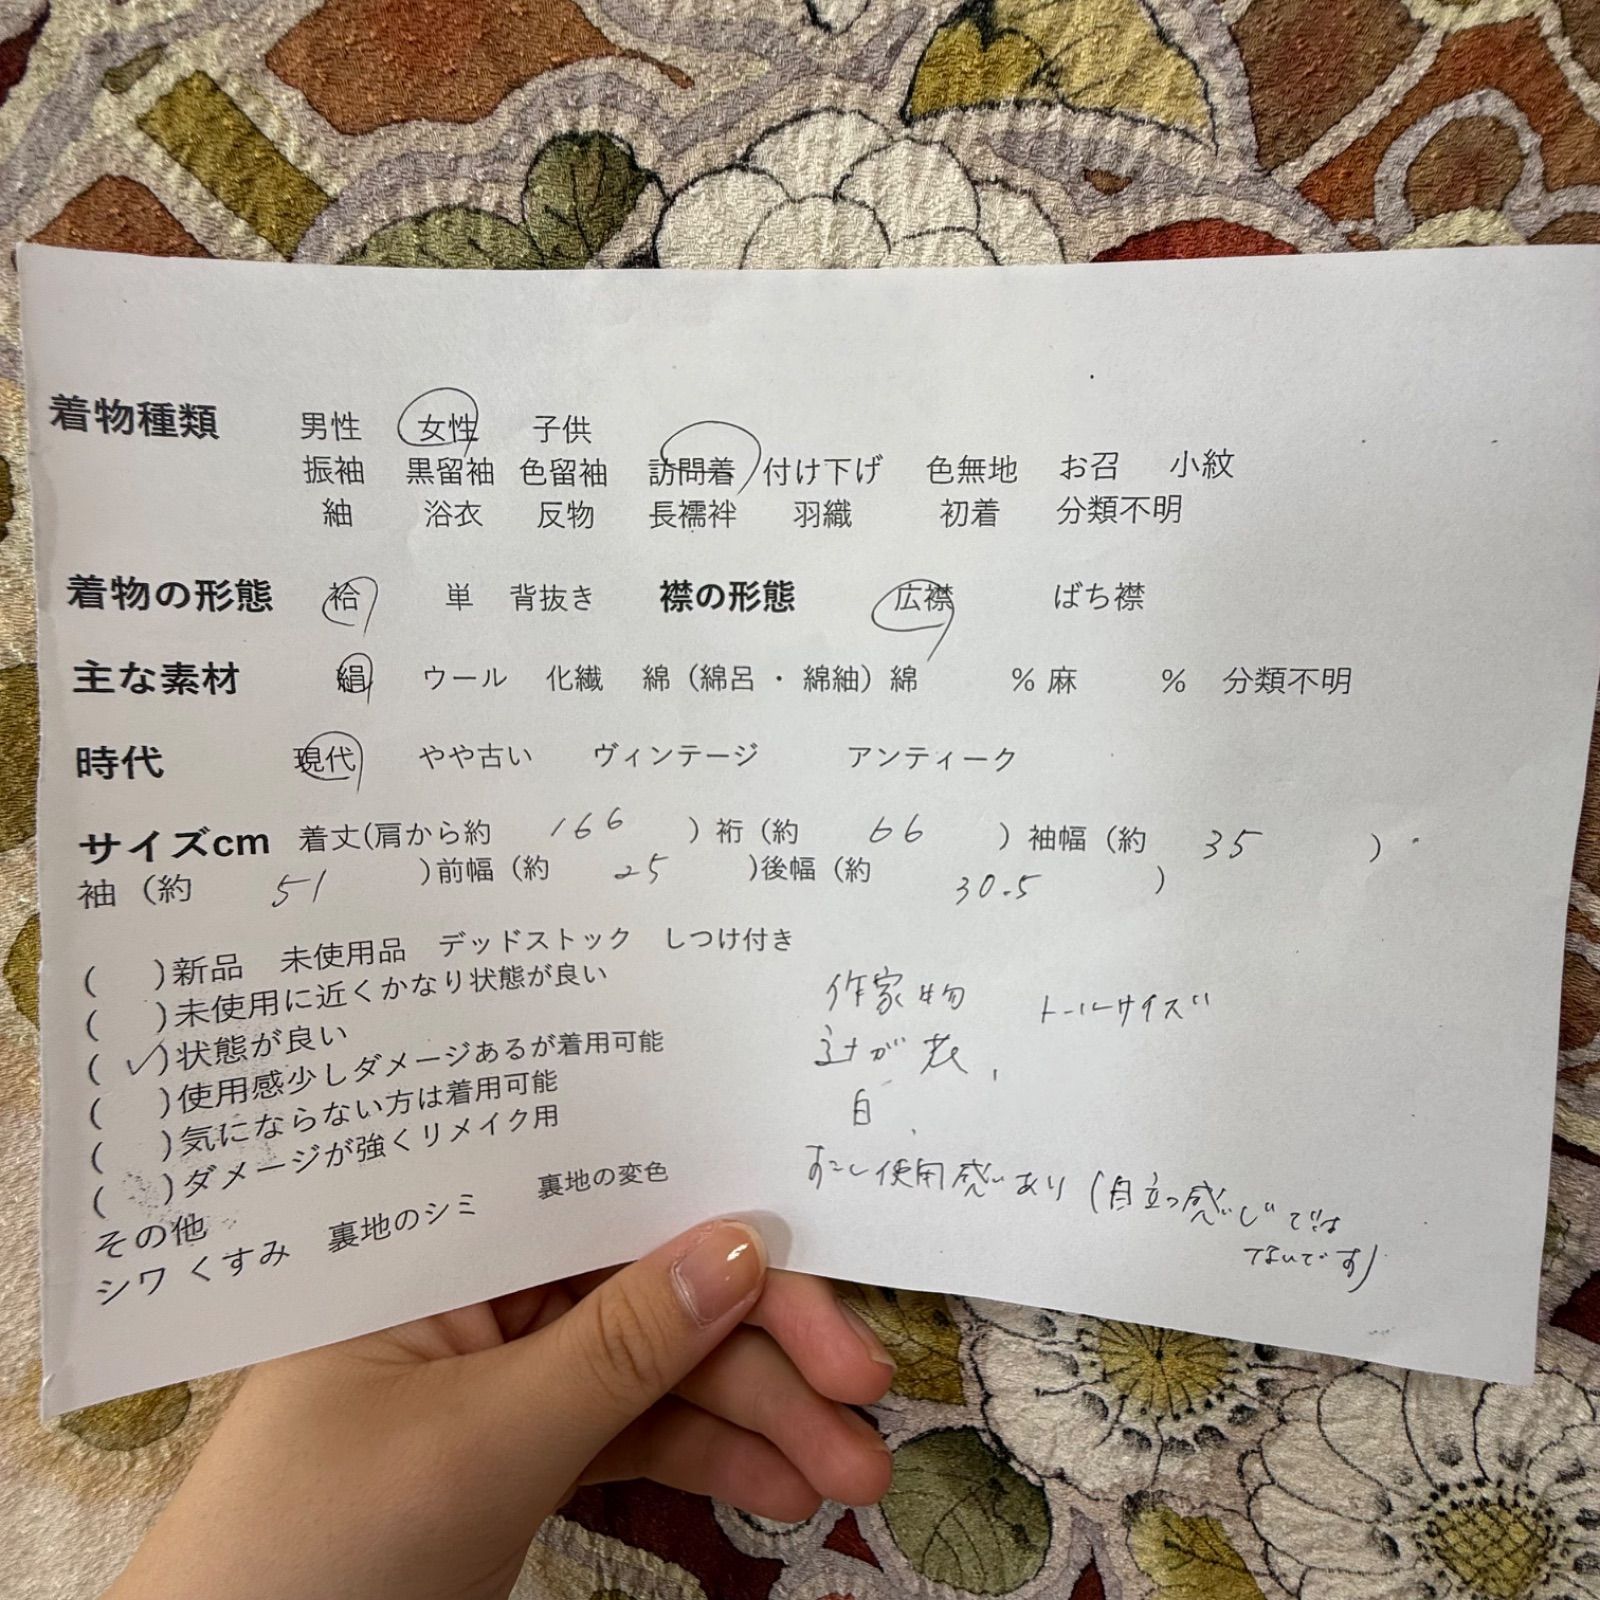 着物種類 男性 女性 子供
振袖 黒留袖 色留袖 訪問着 付け下げ 色無地 お召 小紋
紬 浴衣 反物 長襦袢 羽織 初着 分類不明
着物の形態 袷 単 背抜き 襟の形態 広襟 ばち襟
主な素材 絹 ウール 化繊 綿（綿呂・綿紬）綿 % 麻 % 分類不明
時代 現代 やや古い ヴィンテージ アンティーク
サイズcm 着丈(肩から約 166 ) 裄（約 66 ) 袖幅（約 35 )
袖（約 51 )前幅（約 25 )後幅（約 30.5 )
( )新品 未使用品 デッドストック しつけ付き
( )未使用に近くかなり状態が良い
( ✓)状態が良い
( )使用感少しダメージあるが着用可能
( )気にならない方は着用可能
( )ダメージが強くリメイク用
その他
シワ くすみ 裏地のシミ 裏地の変色
作家物 トールサイズ
辻が花
すこし使用感あり(目立つ感じでは
ないです)